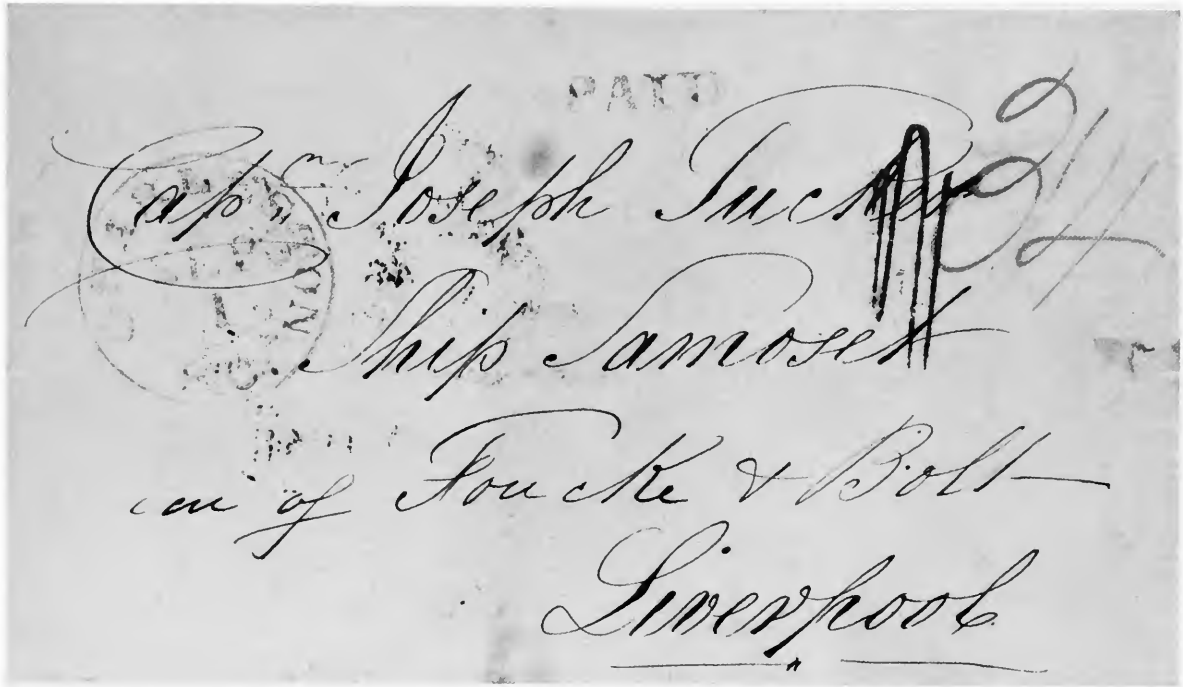 PAID
24
Cap. Joseph Tucker
Ship Samoset
of Foucke & Bolt
Liverpool